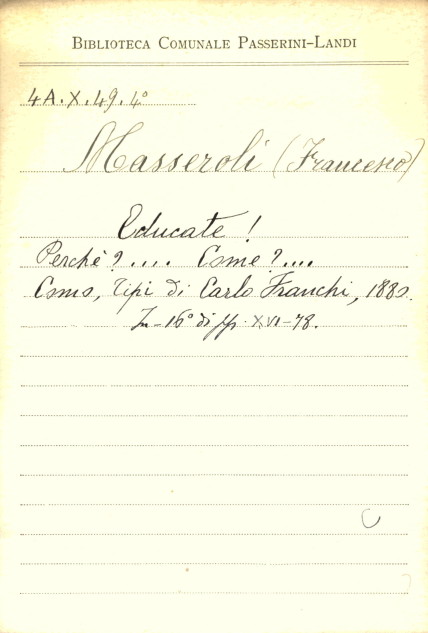 BIBLIOTECA COMUNALE PASSERINI-LANDI
4A.X.49.4°
Masseroli (Francesco)
Educate!
Perchè?.... Come?....
Como, Tipi di Carlo Franchi, 1880.
In-16° di pp. XVI-78.
C